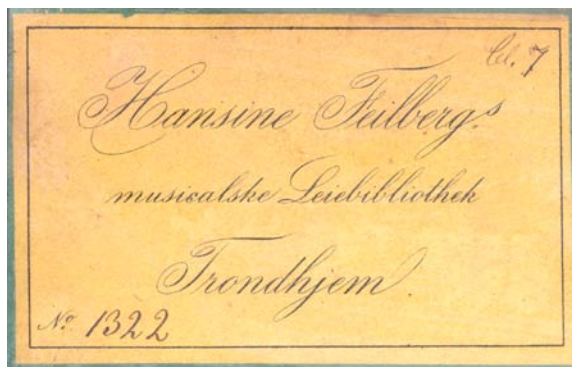 Cl. 7
Hansine Feilbergs
musicalske Leiebibliothek
Trondhjem.
No. 1322